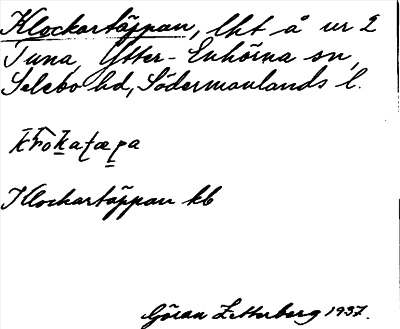 Klockartäppan, lht å nr 2
Tuna, Ytter-Enhörna sn,
Selebo hd, Södermanlands l.
Klockartäppan kb
Göran Zetterberg 1937.